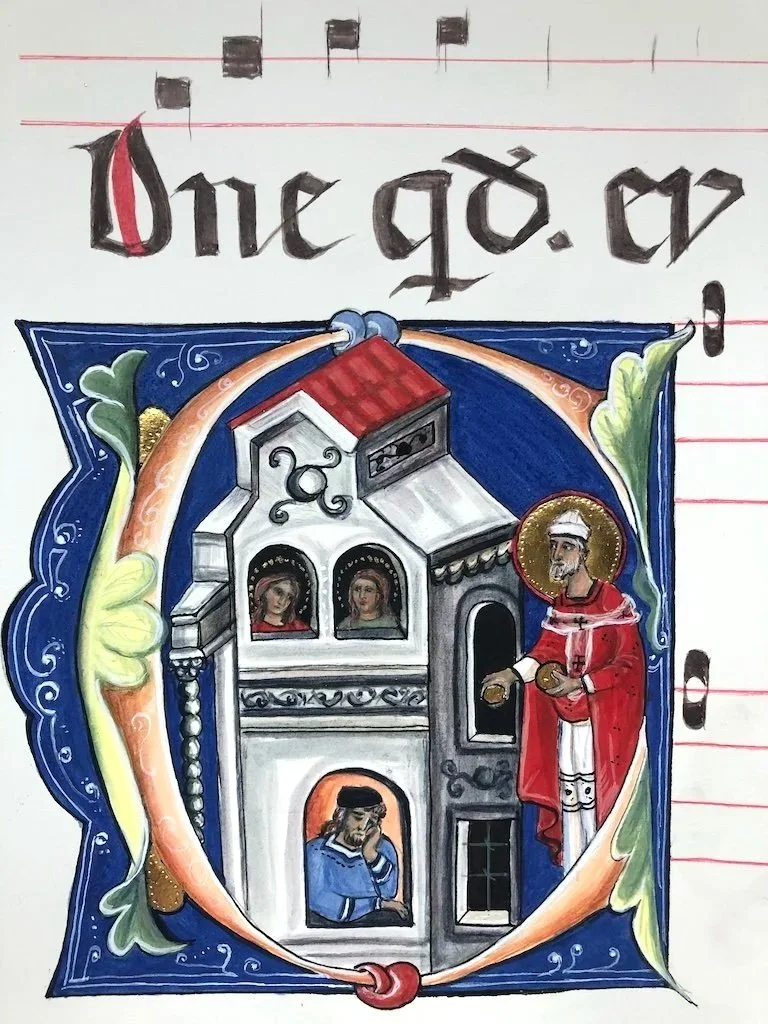 Dne qd. ev